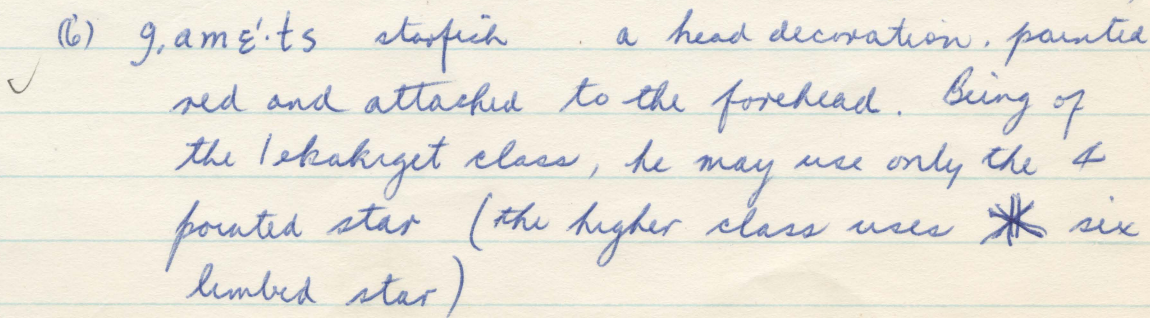 (6) g,amɛ́·ts starfish . a head decoration. painted
red and attached to the forehead. Being of
the lekakıget class, he may use only the 4
pointed star (the higher class uses six
limbed star)